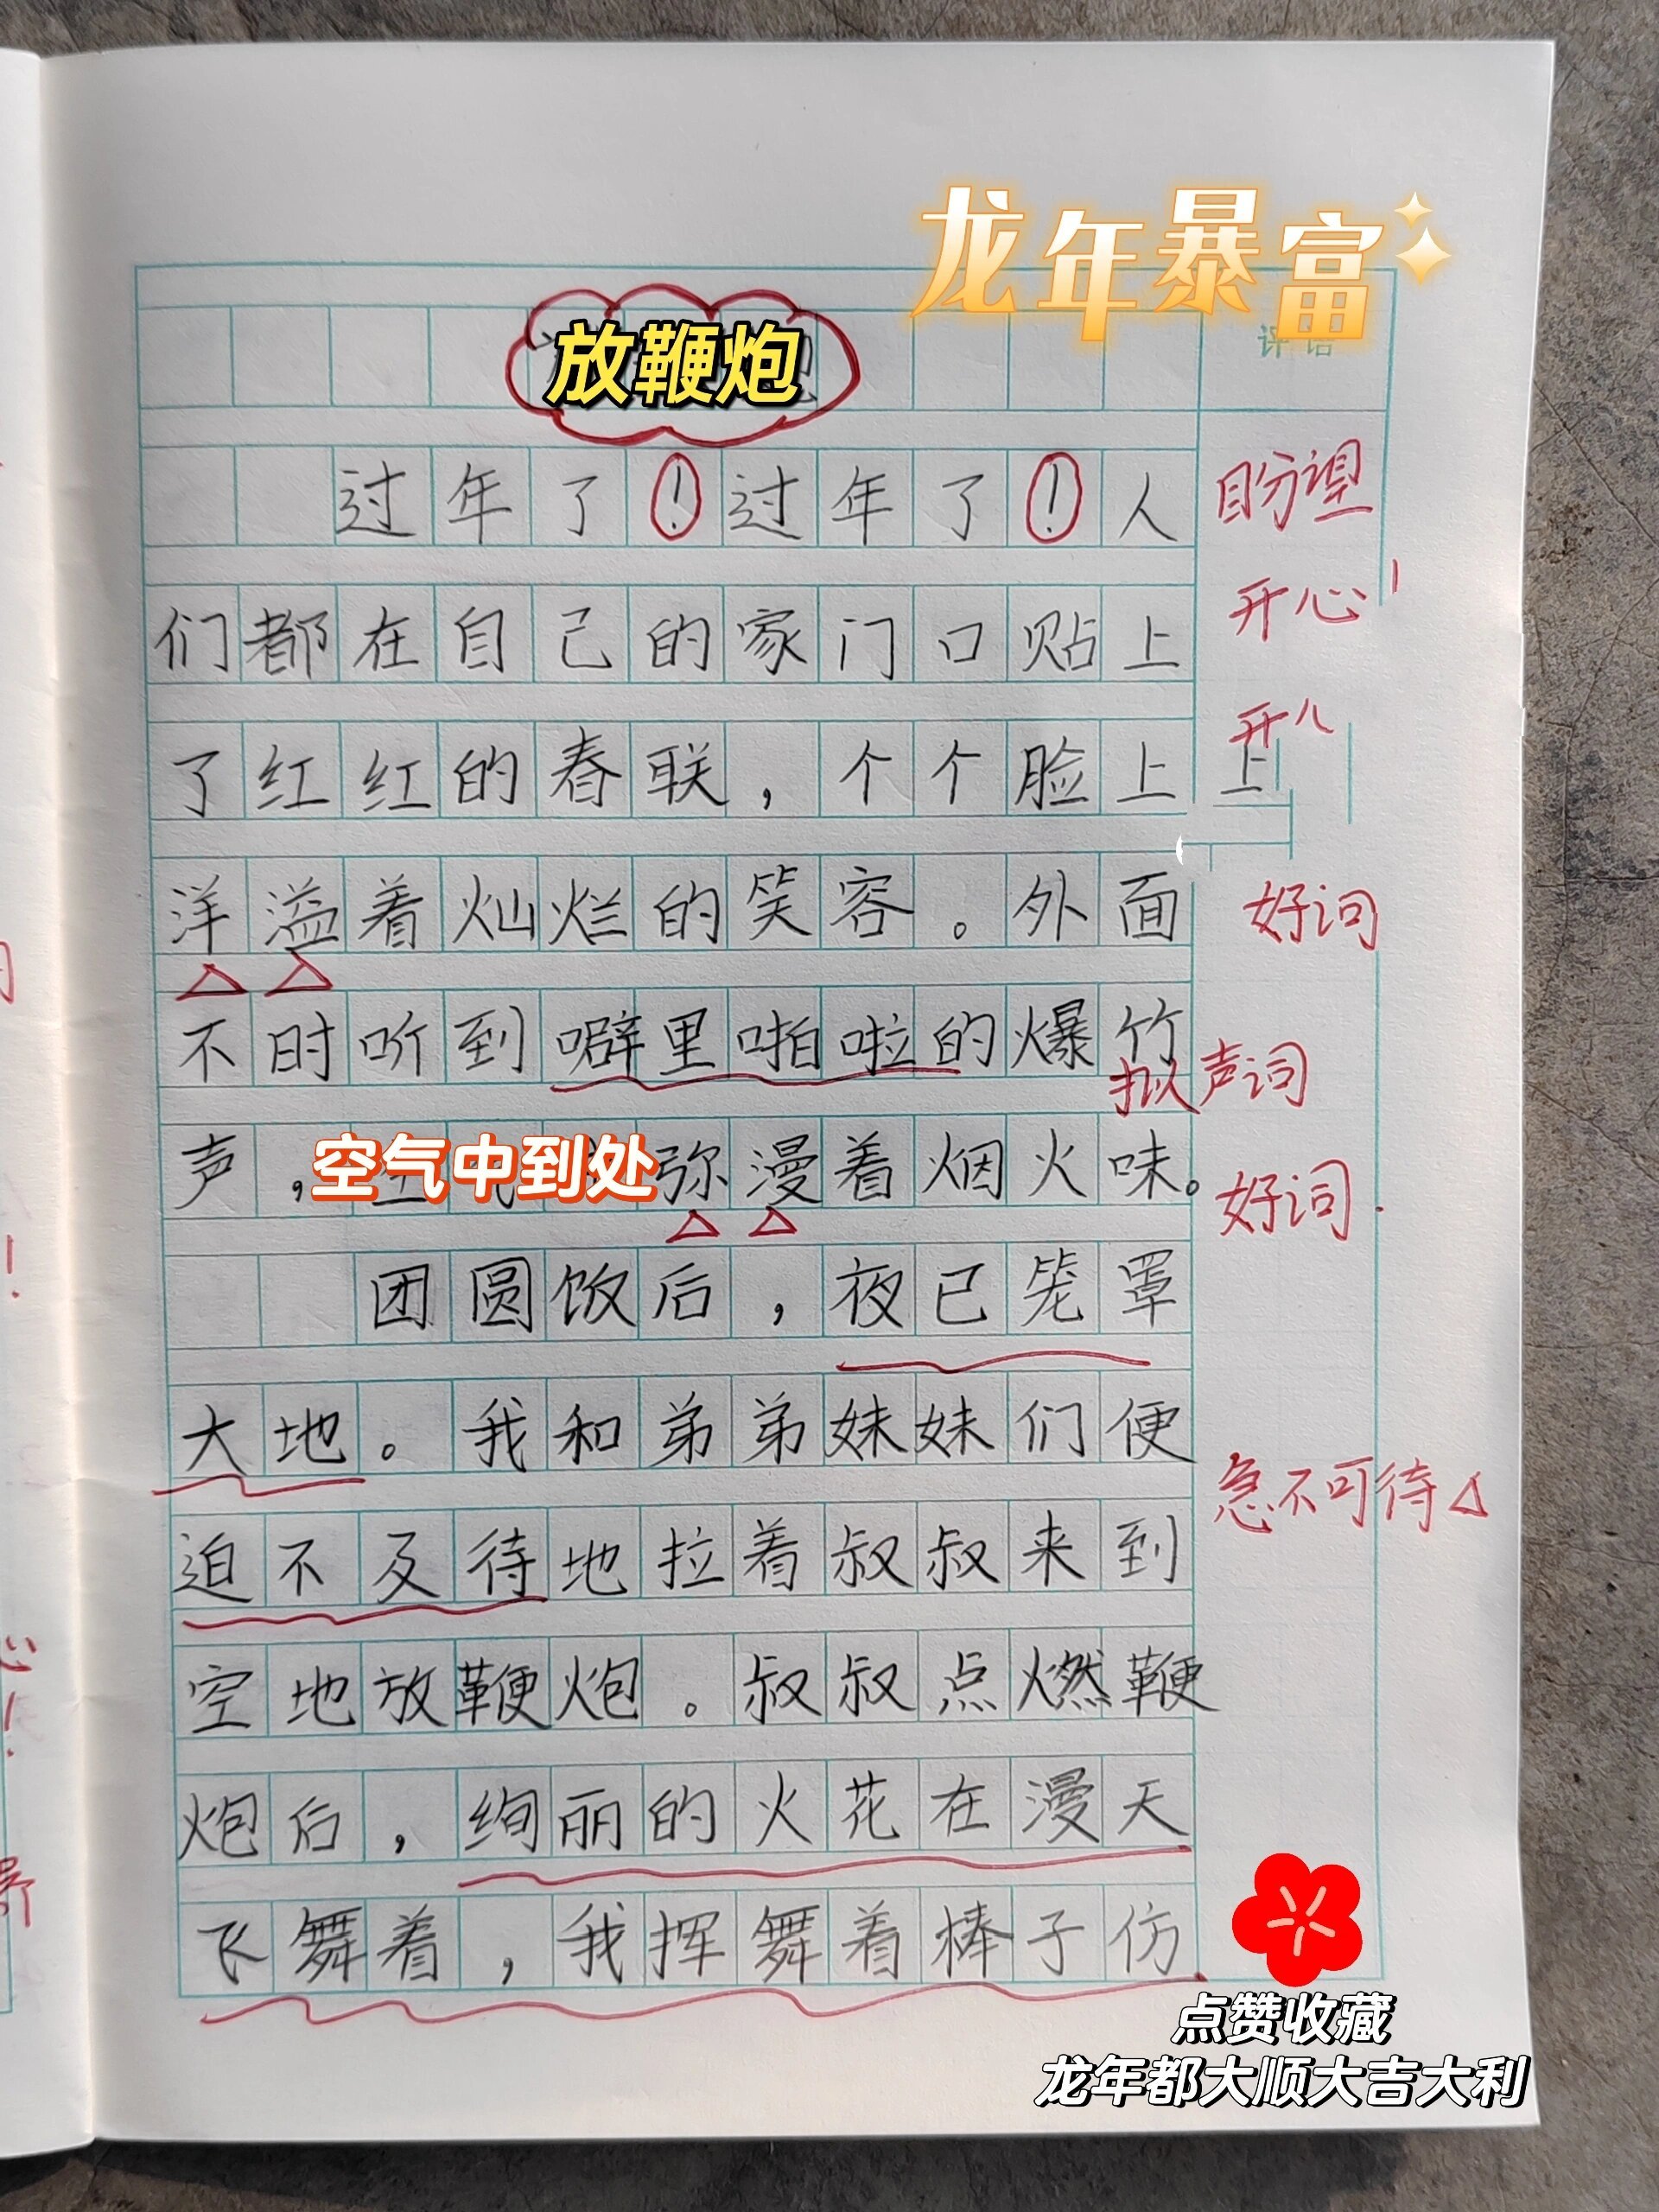 龙年暴富
评语
放鞭炮
过年了！过年了！人 盼望
们都在自己的家门口贴上 开心
了红红的春联，个个脸上 上 开
洋溢着灿烂的笑容。外面 好词
不时听到噼里啪啦的爆竹 拟声词
声，空气中到处弥漫着烟火味。 好词.
团圆饭后，夜已笼罩
大地。我和弟弟妹妹们便
迫不及待地拉着叔叔来到 急不可待
空地放鞭炮。叔叔点燃鞭
炮后，绚丽的火花在漫天
飞舞着，我挥舞着棒子仿
点赞收藏
龙年都大顺大吉大利